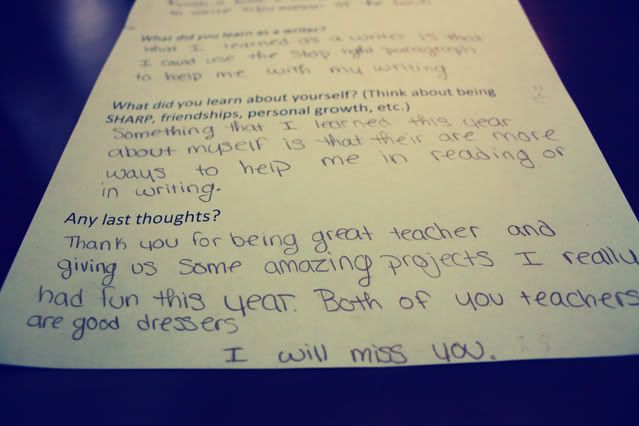 What did you learn as a writer?
What I learned as a writer is that
I could use the stop light paragraph
to help me with my writing
What did you learn about yourself? (Think about being
SHARP, friendships, personal growth, etc.)
Something that I learned this year
about myself is that their are more
ways to help me in reading or
in writing.
Any last thoughts?
Thank you for being great teacher and
giving us some amazing projects I really
had fun this year. Both of you teachers
are good dressers
I will miss you.